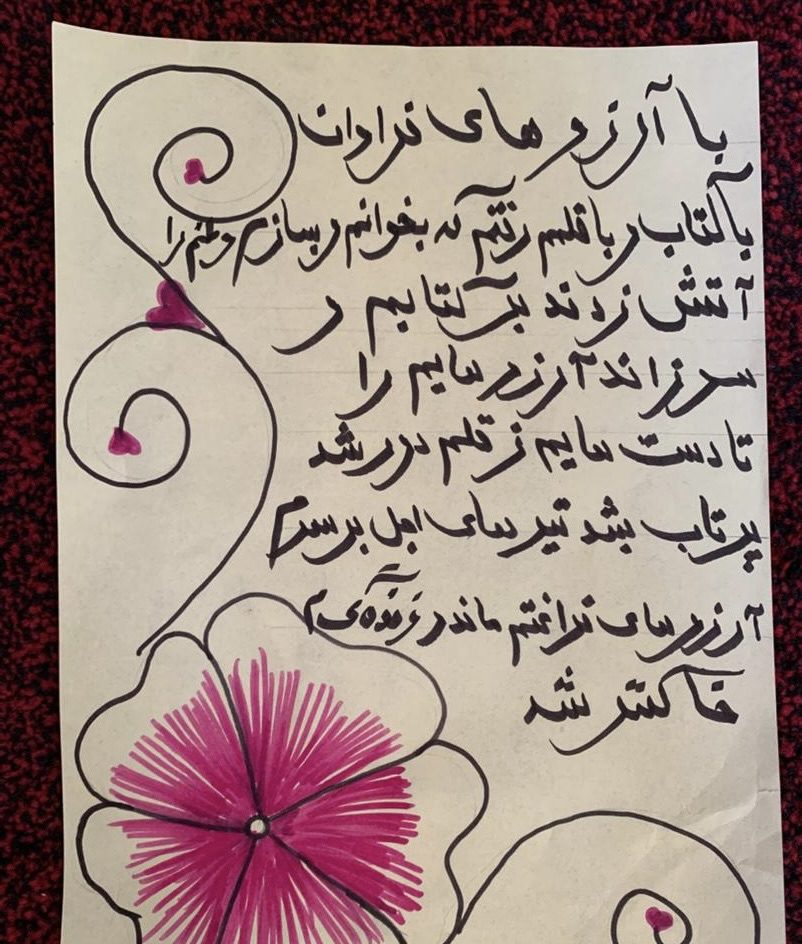 با آرزو های فراوان
با کتاب و با قلمم رفتم که بخوانم و بسازم وطنم را
آتش زدند بر کتابم و
سوزاند آرزو هایم را
تا دست هایم ز قلم دور شد
پرتاب بشد تیر های اجل بر سرم
آرزو های ماند و
خاکستر شد